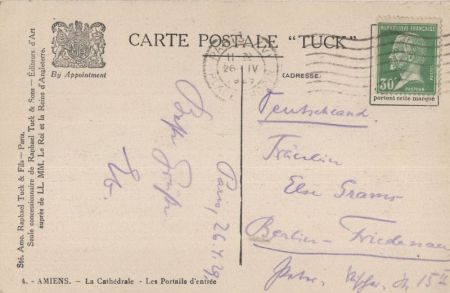 CARTE POSTALE "TUCK"
By Appointment
(ADRESSE.
RÉPUBLIQUE FRANÇAISE
30
PASTEUR
POSTES
portent cette marque
26 IV
Sté. Ame. Raphael Tuck & Fils — Paris.
Seule concessionnaire de Raphael Tuck & Sons — Éditeurs d'Art
auprès de LL. MM. Le Roi et la Reine d'Angleterre.
Paris, 26.4.29
Deutschland
Fräulein
Else Grams
Berlin-Friedenau
15 II
4. - AMIENS. - La Cathédrale - Les Portails d'entrée